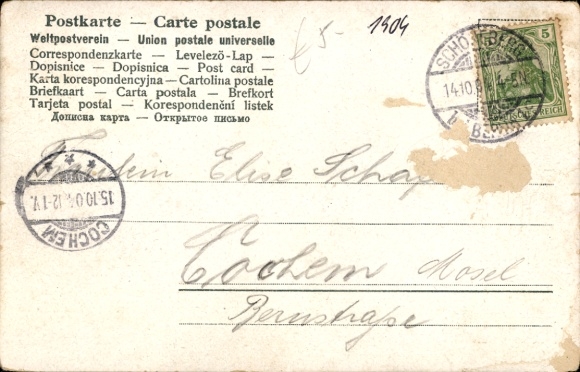 Postkarte — Carte postale
Weltpostverein — Union postale universelle
Correspondenzkarte — Levelezö-Lap —
Dopisnice — Dopisnica — Post card —
Karta korespondencyjna — Cartolina postale
Briefkaart — Carta postala — Brefkort
Tarjeta postal — Korespondenční listek
Дописна карта — Открытое письмо
£5-
1904
SCHÖNEBERG
14.10.
5
REICH
Fräulein Elise
15.10.04.12-1V.
COCHEM
Cochem Mosel
Bernstraße